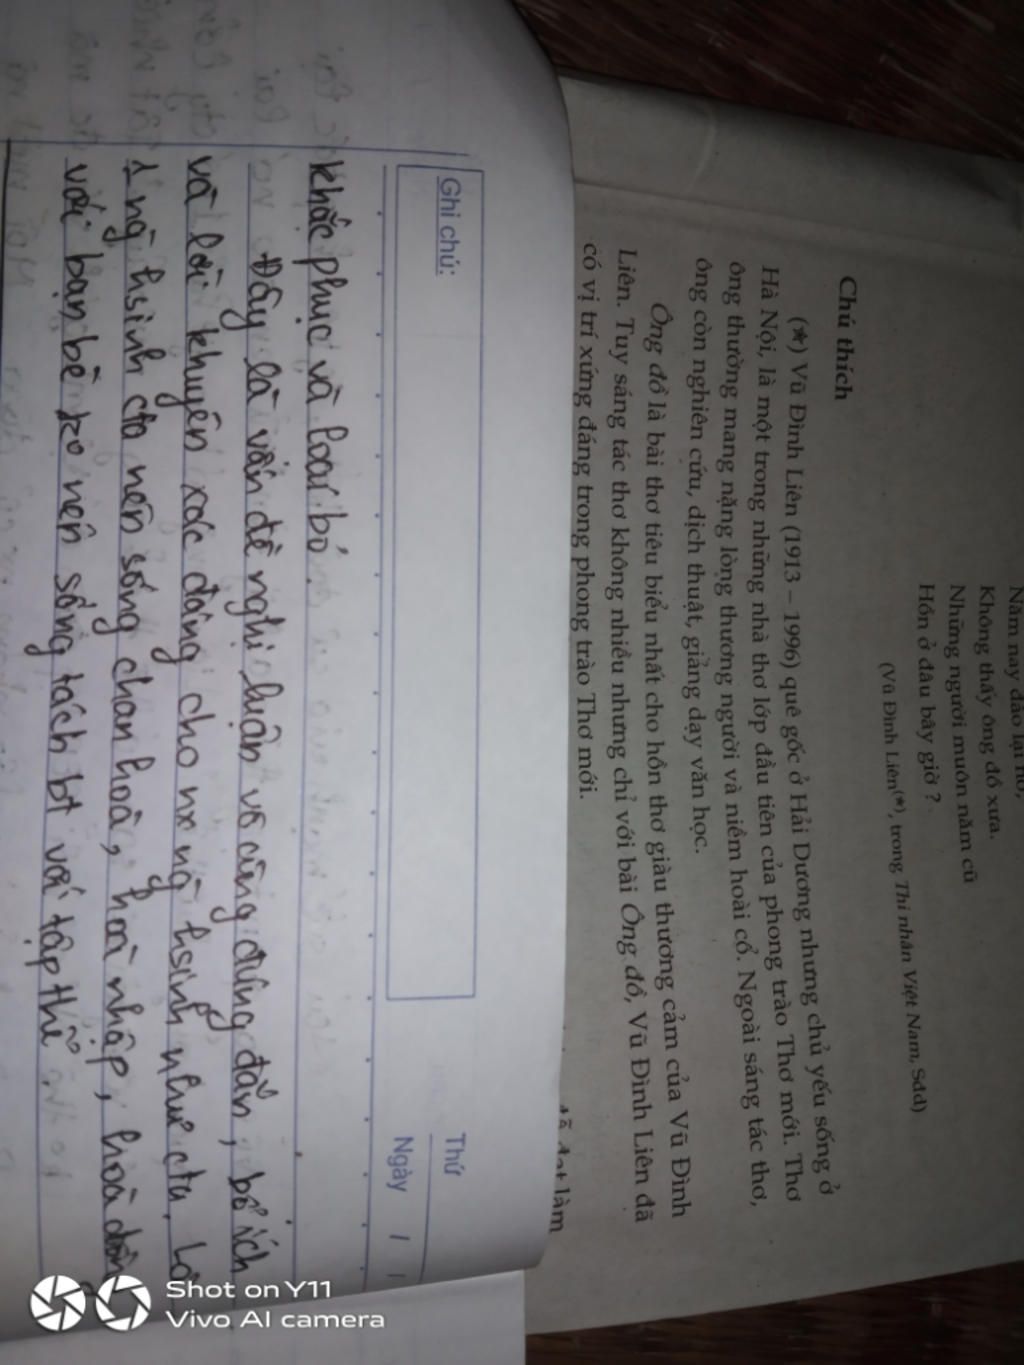 Năm nay đào lại nở,
Không thấy ông đồ xưa.
Những người muôn năm cũ
Hồn ở đâu bây giờ ?
(Vũ Đình Liên(*), trong Thi nhân Việt Nam, Sđd)
Chú thích
(*) Vũ Đình Liên (1913 – 1996) quê gốc ở Hải Dương nhưng chủ yếu sống ở
Hà Nội, là một trong những nhà thơ lớp đầu tiên của phong trào Thơ mới. Thơ
ông thường mang nặng lòng thương người và niềm hoài cổ. Ngoài sáng tác thơ,
ông còn nghiên cứu, dịch thuật, giảng dạy văn học.
Ông đồ là bài thơ tiêu biểu nhất cho hồn thơ giàu thương cảm của Vũ Đình
Liên. Tuy sáng tác thơ không nhiều nhưng chỉ với bài Ông đồ, Vũ Đình Liên đã
có vị trí xứng đáng trong phong trào Thơ mới.
làm
Ghi chú:
Thứ
Ngày / /
khắc phục và loại bỏ
Đây là vấn đề nghị luận vô cùng đúng đắn, bổ ích
và lời khuyên xác đáng cho nx ng̃ hsinh như cta. Là
1 ng̃ hsinh cta nên sống chan hoà, hoà nhập, hoà đồng
với bạn bè ko nên sống tách bt với tập thể.
Shot on Y11
Vivo AI camera